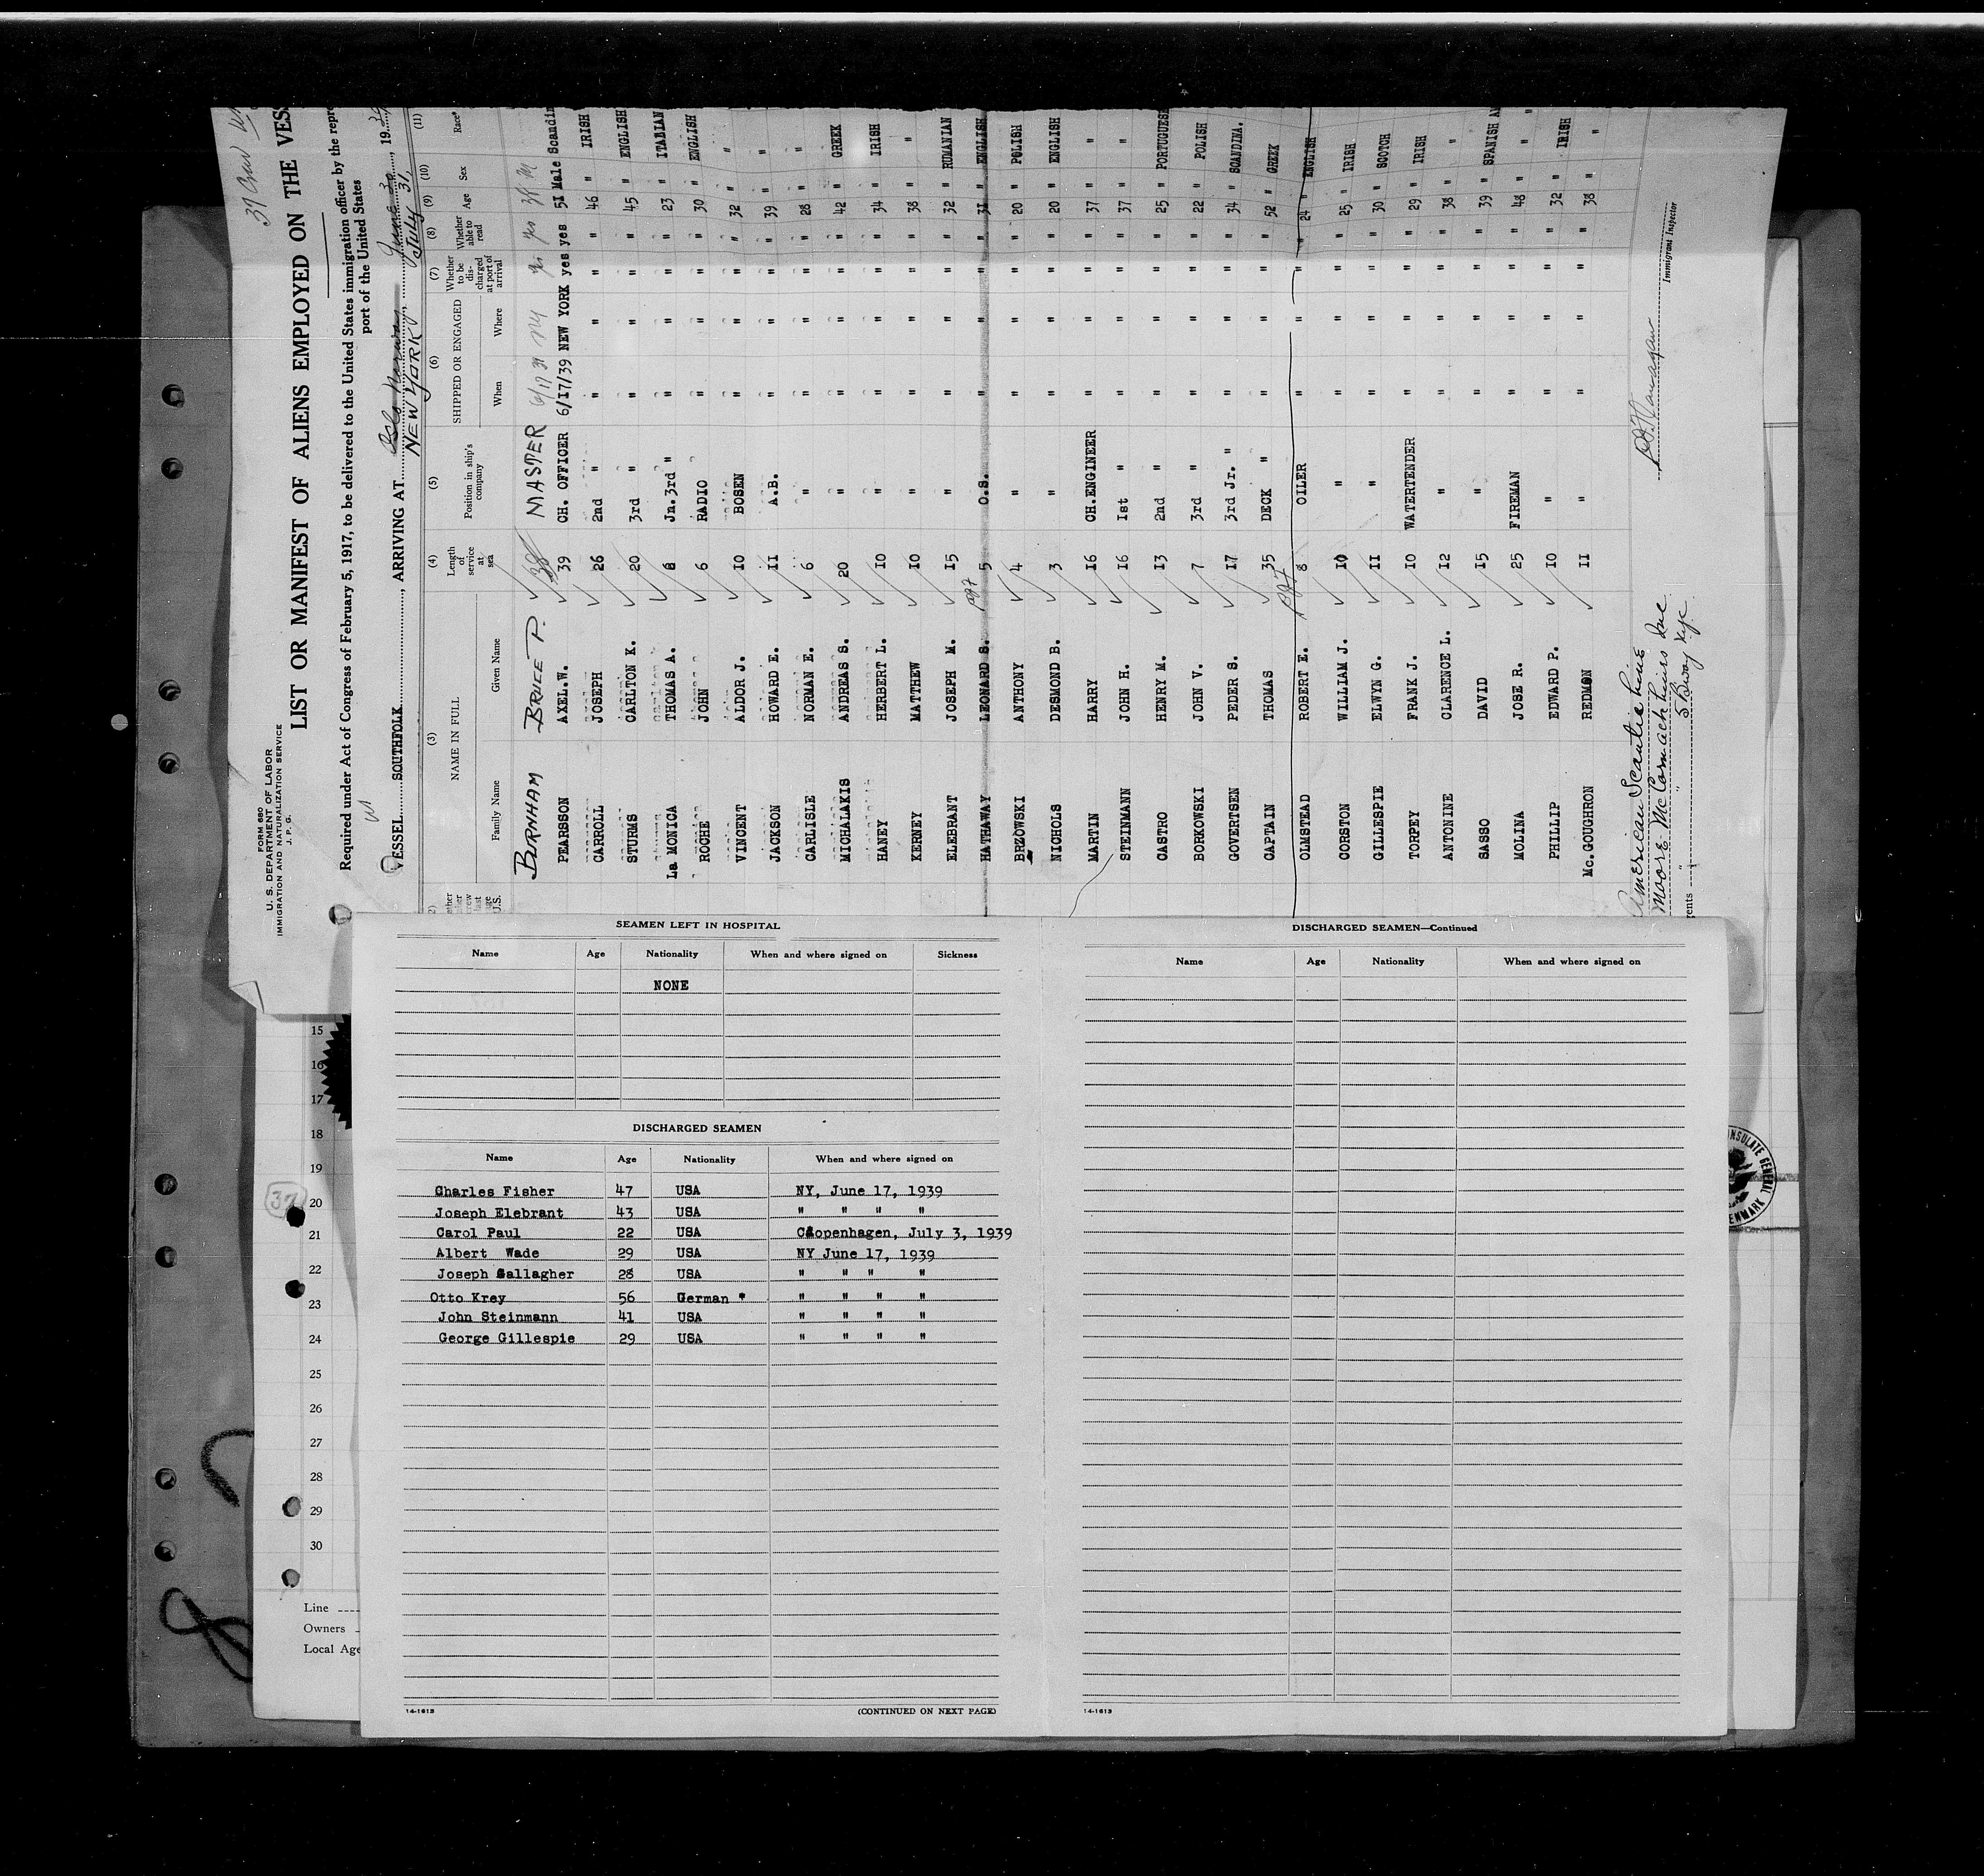 37 Crew
FORM 680
U. S. DEPARTMENT OF LABOR
IMMIGRATION AND NATURALIZATION SERVICE
J. P. G.
LIST OR MANIFEST OF ALIENS EMPLOYED ON THE VES
Required under Act of Congress of February 5, 1917, to be delivered to the United States immigration officer by the repr
port of the United States
VESSEL SOUTHFOLK, ARRIVING AT Oslo Norway, June 30, 193
NEW YORK, July 31,
(3) (4) (5) (6) (7) (8) (9) (10) (11)
NAME IN FULL Length of service at sea Position in ship's company SHIPPED OR ENGAGED Whether to be discharged at port of arrival Whether able to read Age Sex Race*
Family Name Given Name When Where
BURNHAM 38 MASTER 6/17 39 NY yes yes 38 M
PEARSSON AXEL.W. 39 CH. OFFICER 6/I7/39 NEW YORK yes yes 51 Male Scandin
CARROLL JOSEPH 26 2nd " " " " " 46 " IRISH
STURMS CARLTON K. 20 3rd " " " " " 45 " ENGLISH
La MONICA THOMAS A. 8 Jn.3rd " " " " " 23 " ITABIAN
ROCHE JOHN 6 RADIO " " " " 30 " ENGLISH
VINCENT ALDOR J. IO BOSEN " " " " 32 " "
JACKSON HOWARD E. II A.B. " " " " 39 " "
CARLISLE NORMAN E. 6 " " " " " 28 " "
MICHALAKIS ANDREAS S. 20 " " " " " 42 " GREEK
HANEY HERBERT L. IO " " " " " 34 " IRISH
KERNEY MATTHEW IO " " " " " 38 " "
ELEBRANT JOSEPH M. I5 " " " " " 32 " RUMANIAN
HATHAWAY LEONARD S. 5 O.S. " " " " 31 " ENGLISH
BRZOWSKI ANTHONY 4 " " " " " 20 " POLISH
NICHOLS DESMOND B. 3 " " " " " 20 " ENGLISH
MARTIN HARRY I6 CH.ENGINEER " " " " 37 " "
STEINMANN JOHN H. I6 Ist " " " " " 37 " "
CASTRO HENRY M. I3 2nd " " " " " 25 " PORTUGUESE
BORKOWSKI JOHN V. 7 3rd " " " " " 22 " POLISH
GOVERTSEN PEDER S. I7 3rd Jr. " " " " " 34 " SCANDINA.
CAPTAIN THOMAS 35 DECK " " " " " 52 " GREEK
OLMSTEAD ROBERT E. 8 OILER " " " " 24 " ENGLISH
CORSTON WILLIAM J. IO " " " " " 25 " IRISH
GILLESPIE ELWYN G. II " " " " " 30 " SCOTCH
TORPEY FRANK J. IO WATERTENDER " " " " 29 " IRISH
ANTONINE CLARENCE L. I2 " " " " " 38 " "
SASSO DAVID I5 " " " " " 39 " SPANISH AM
MOLINA JOSE R. 25 FIREMAN " " " " 48 " "
PHILLIP EDWARD P. IO " " " " " 32 " IRISH
Mc.GOUGHRON REDMON II " " " " " 38 " "
American Scantic Line
Moore McCormack Lines Inc
ents " " 5 Bway nyc
Immigrant Inspector
SEAMEN LEFT IN HOSPITAL
Name Age Nationality When and where signed on Sickness
NONE
DISCHARGED SEAMEN
Name Age Nationality When and where signed on
Charles Fisher 47 USA NY, June 17, 1939
Joseph Elebrant 43 USA " " " "
Carol Paul 22 USA Copenhagen, July 3, 1939
Albert Wade 29 USA NY June 17, 1939
Joseph Gallagher 28 USA " " " "
Otto Krey 56 German * " " " "
John Steinmann 41 USA " " " "
George Gillespie 29 USA " " " "
14-1613 (CONTINUED ON NEXT PAGE)
DISCHARGED SEAMEN—Continued
Name Age Nationality When and where signed on
14-1613
15
16
17
18
19
37
20
21
22
23
24
25
26
27
28
29
30
Line
Owners
Local Age
NSULATE GENERAL
ENMARK